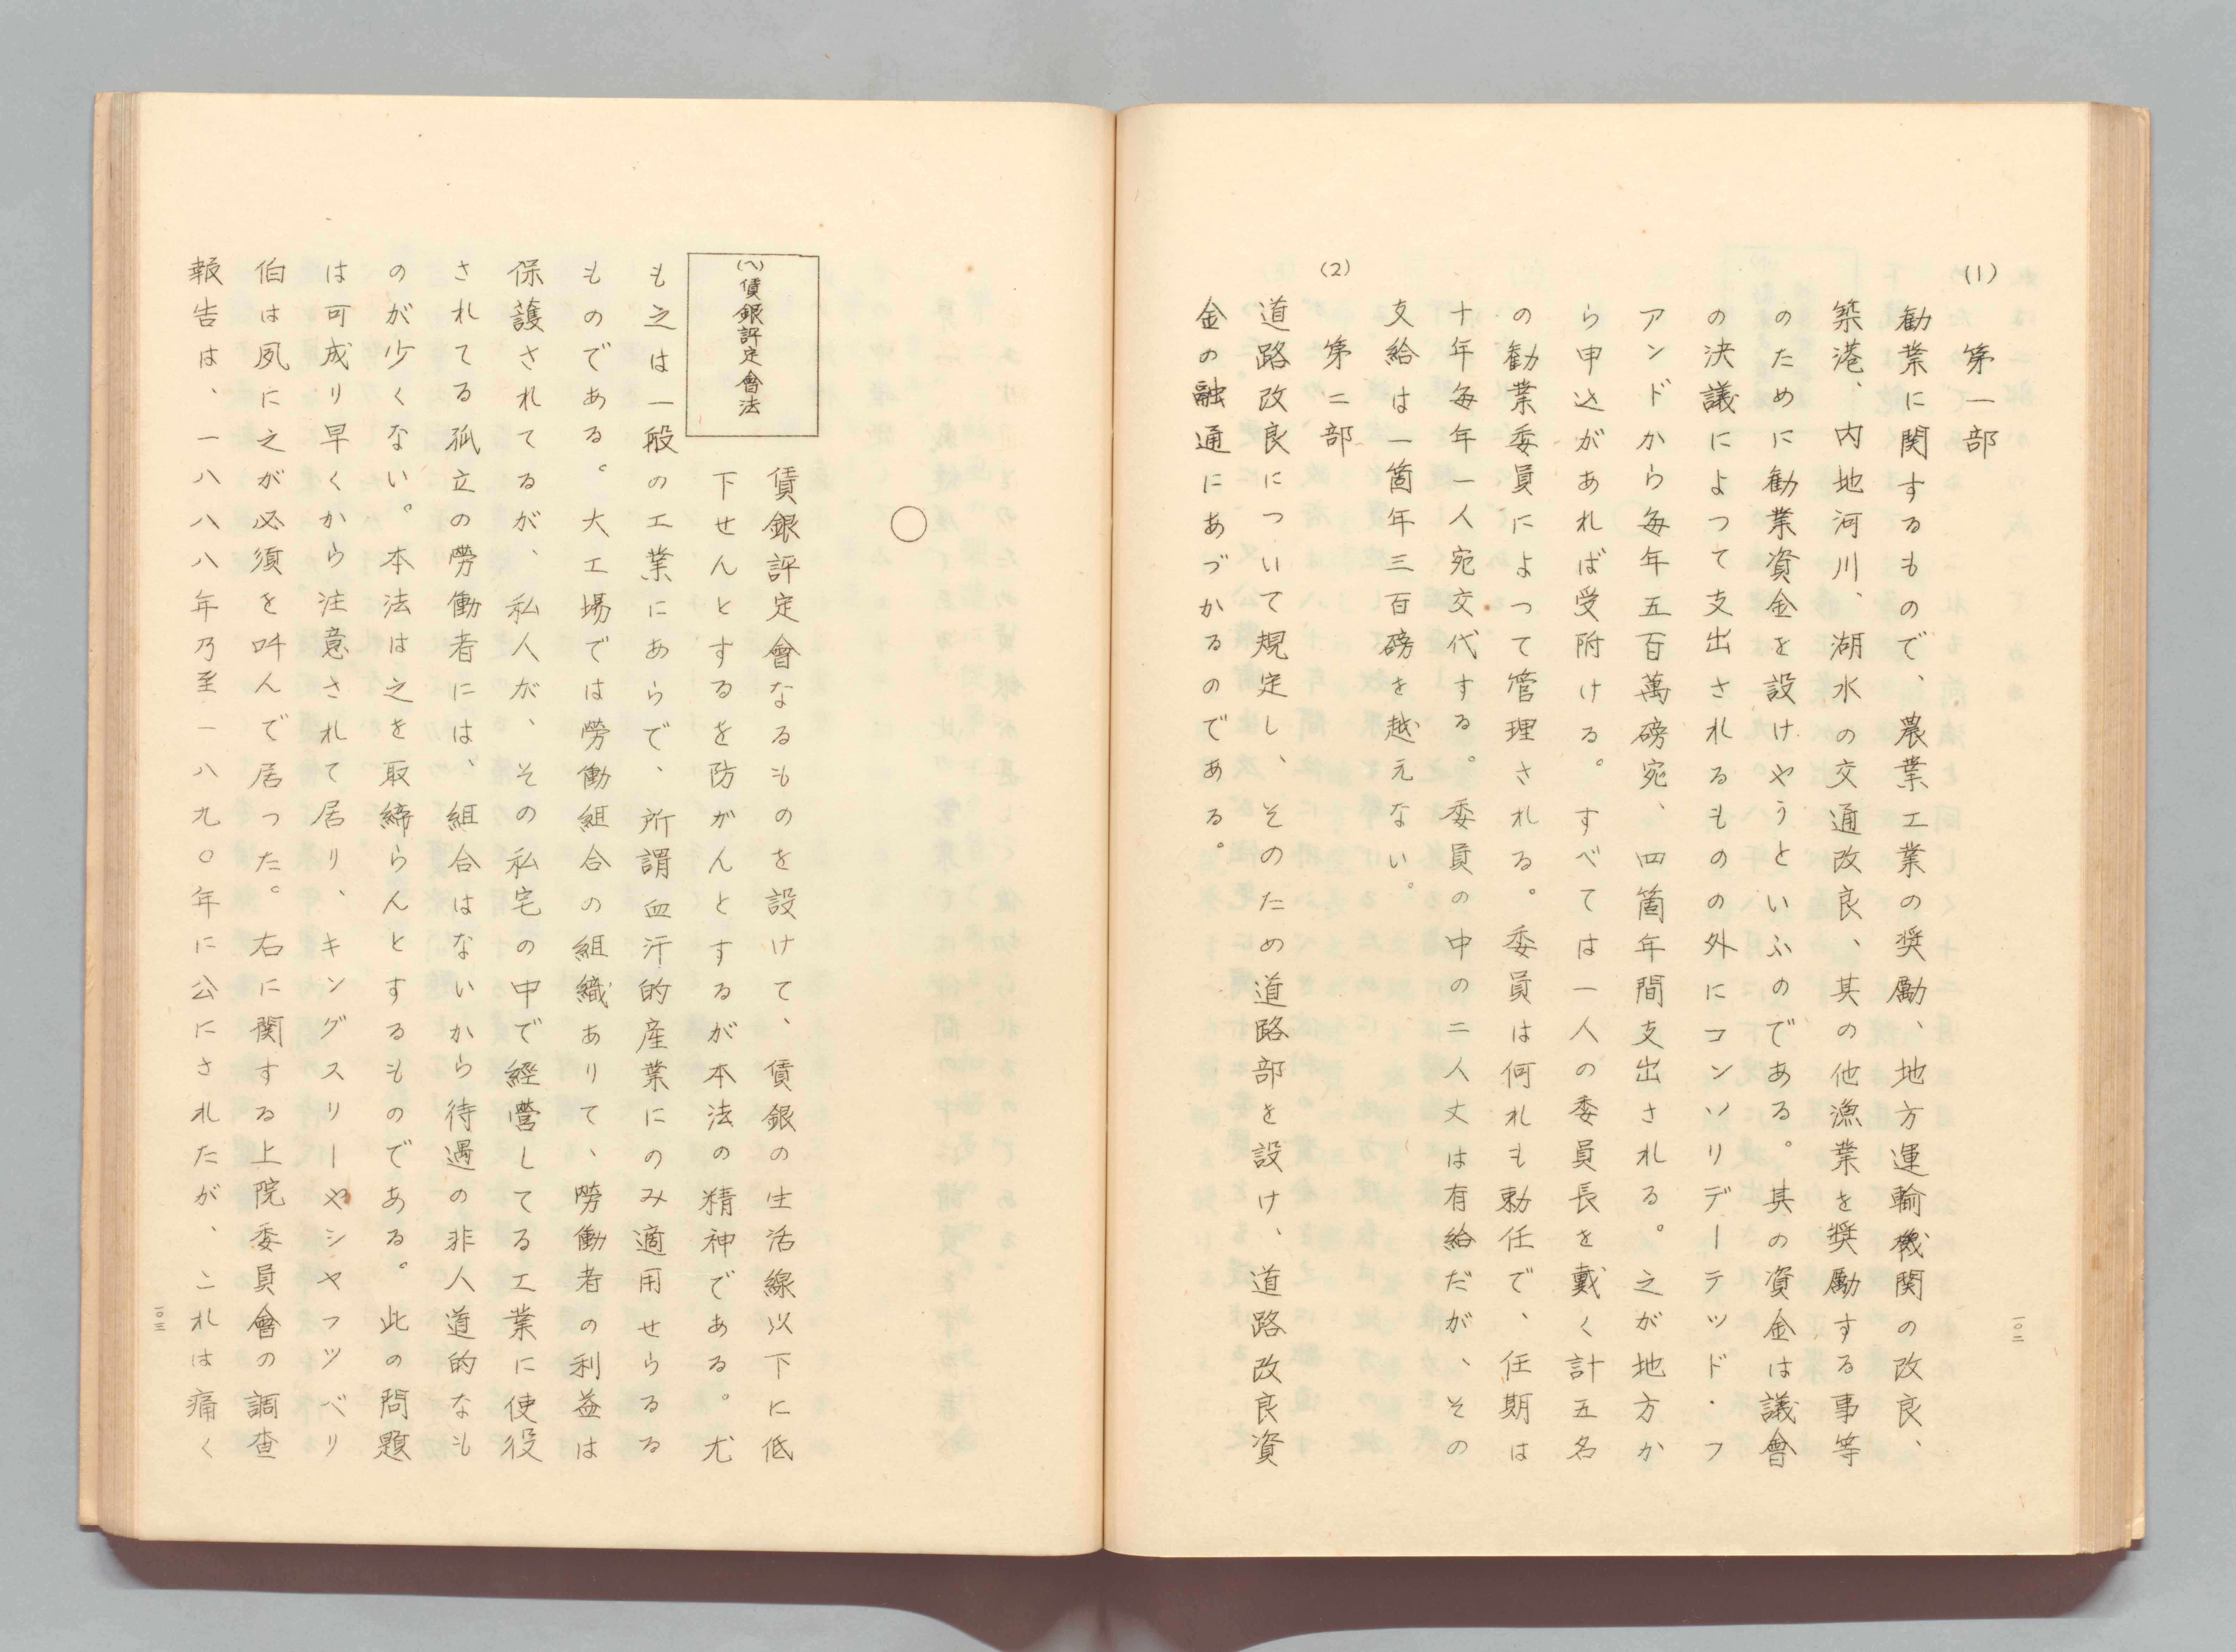 (1) 第一部
勧業に関するもので、農業工業の奨勵、地方運輸機関の改良、
築港、内地河川、湖水の交通改良、其の他漁業を奨勵する事等
のために勧業資金を設けやうといふのである。其の資金は議會
の決議によつて支出されるものの外にコンソリデーテッド・フ
アンドから毎年五百萬磅宛、四箇年間支出される。之が地方か
ら申込があれば受附ける。すべては一人の委員長を戴く計五名
の勧業委員によつて管理される。委員は何れも勅任で、任期は
十年毎年一人宛交代する。委員の中の二人丈は有給だが、その
支給は一箇年三百磅を越元ない。
(2) 第二部
道路改良について規定し、そのため道路部を設け、道路改良資
金の融通にあづかるのである。
一〇二
○
(ヘ)賃銀評定會法
賃銀評定會なるものを設けて、賃銀の生活線以下に低
下せんとするを防がんとするが本法の精神である。尤
も之は一般の工業にあらで、所謂血汗的産業にのみ適用せらるる
ものである。大工場では勞働組合の組織ありて、勞働者の利益は
保護されてるが、私人が、その私宅の中で経営してる工業に使役
されてる孤立の勞働者には、組合はないから待遇の非人道的なも
のが少くない。本法は之を取締らんとするものである。此の問題
は可成り早くから注意されて居り、キングスリーやシヤフツベリ
伯は夙に之が必須を叫んで居つた。右に関する上院委員會の調査
報告は、一八八八年乃至一八九〇年に公にされたが、これは痛く
一〇三